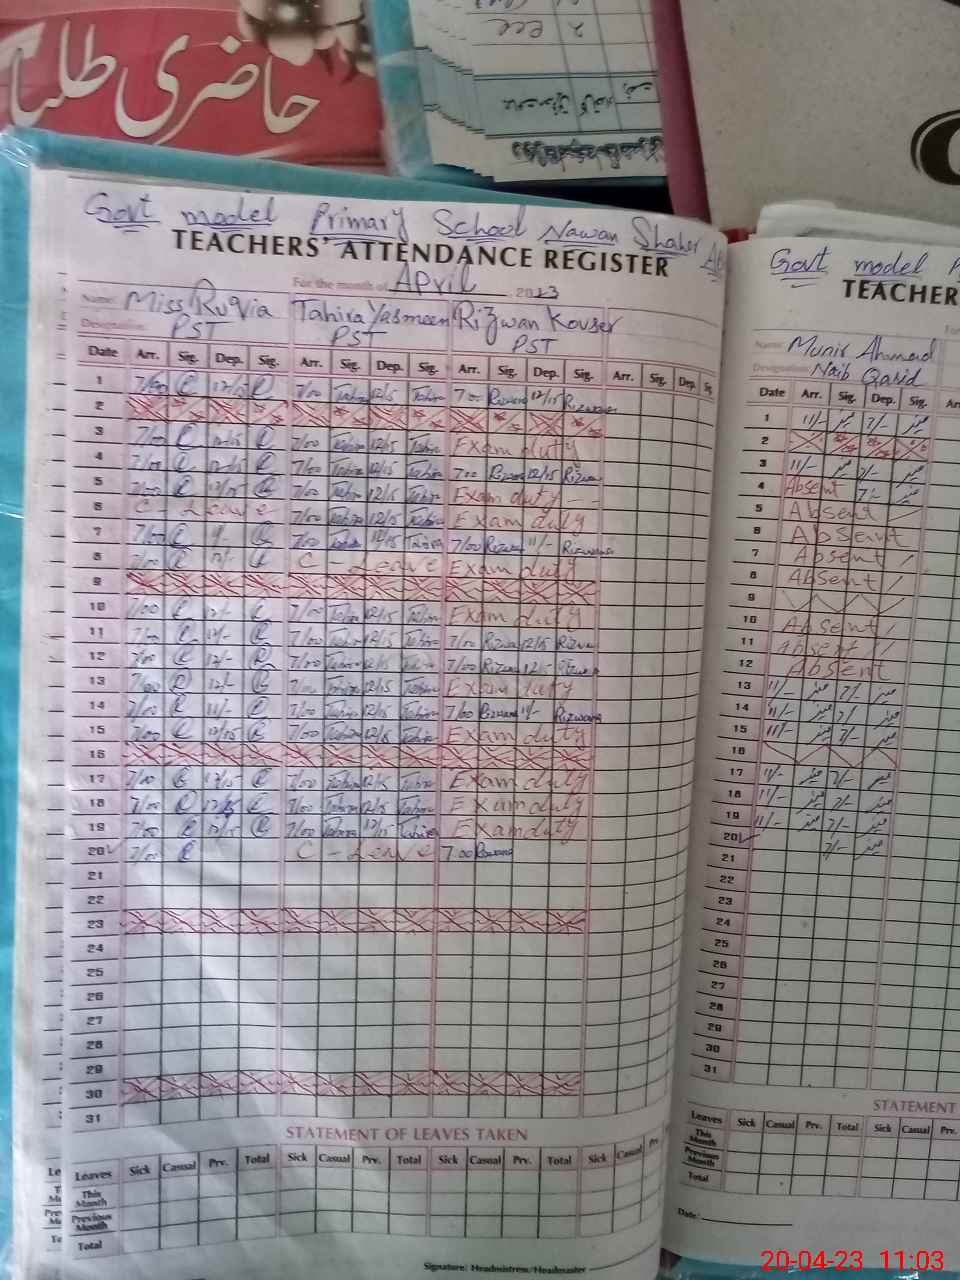 حاضری طلبا
Govt model Primary School Nawan Shaher
TEACHERS' ATTENDANCE REGISTER
For the month of April 2023
Name: Miss Ruqia Tahira Yasmeen Rizwan Kouser
Designation: PST PST PST
Date Arr. Sig. Dep. Sig. Arr. Sig. Dep. Sig. Arr. Sig. Dep. Sig. Arr. Sig. Dep.
1 7/00 12/15 7/00 Tahira 12/15 Tahira 7:00 Rizwana 12/15 Rizwana
2
3 7/00 12/15 7/00 Tahira 12/15 Tahira Exam duty
4 7/00 12/15 7/00 Tahira 12/15 Tahira 7:00 Rizwana 12/15 Rizwana
5 7/00 12/15 7/00 Tahira 12/15 Tahira Exam duty
6 C - Leave 7/00 Tahira 12/15 Tahira Exam duty
7 7/00 7/00 Tahira Tahira 7/00 Rizwana 11/- Rizwana
8 7/00 12/- C Leave Exam duty
9
10 7/00 12/- 7/00 Tahira 12/15 Tahira Exam duty
11 7/00 12/- 7/00 Tahira 12/15 Tahira 7/00 Rizwana 12/15 Rizwana
12 7/00 12/- 7/00 Tahira 12/15 Tahira 7/00 Rizwana 12/15 Rizwana
13 7/00 12/- 7/00 Tahira 12/15 Tahira Exam duty
14 7/00 11/- 7/00 Tahira 12/15 Tahira 7/00 Rizwana 11/- Rizwana
15 7/00 12/15 7/00 Tahira 12/15 Tahira Exam duty
16
17 7/00 12/15 7/00 Tahira 12/15 Tahira Exam duty
18 7/00 12/15 7/00 Tahira 12/15 Tahira Exam duty
19 7/00 12/15 7/00 Tahira 12/15 Tahira Exam duty
20 7/00 C - Leave 7:00 Rizwana
21
22
23
24
25
26
27
28
29
30
31
STATEMENT OF LEAVES TAKEN
Leaves Sick Casual Prv. Total Sick Casual Prv. Total Sick Casual Prv. Total Sick Casual Prv.
This Month
Previous Month
Total
Signature: Headmistress/Headmaster
Govt model
TEACHER
Name: Munir Ahmad
Designation Naib Qasid
Date Arr. Sig. Dep. Sig.
1 11/- منیر 7/- منیر
2
3 11/- منیر 7/- منیر
4 Absent 7/- منیر
5 Absent
6 Absent
7 Absent
8 Absent
9
10 Absent
11 Absent
12 Absent
13 11/- منیر 7/- منیر
14 11/- منیر 7/- منیر
15 11/- منیر 7/- منیر
16
17 11/- منیر 7/- منیر
18 11/- منیر 7/- منیر
19 11/- منیر 7/- منیر
20 7/- منیر
21
22
23
24
25
26
27
28
29
30
31
STATEMENT
Leaves Sick Casual Prv. Total Sick Casual Prv.
This Month
Previous Month
Total
Date:
20-04-23 11:03